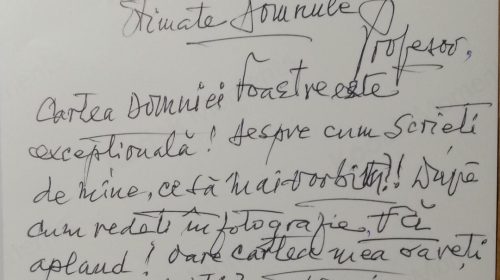 Stimate Domnule
Profesor,
Cartea Domniei Voastre este
excepțională! Despre cum scrieți
de mine, ce să mai vorbim?! După
cum redați în fotografie, Vă
aplaud! Oare cartea mea o aveți